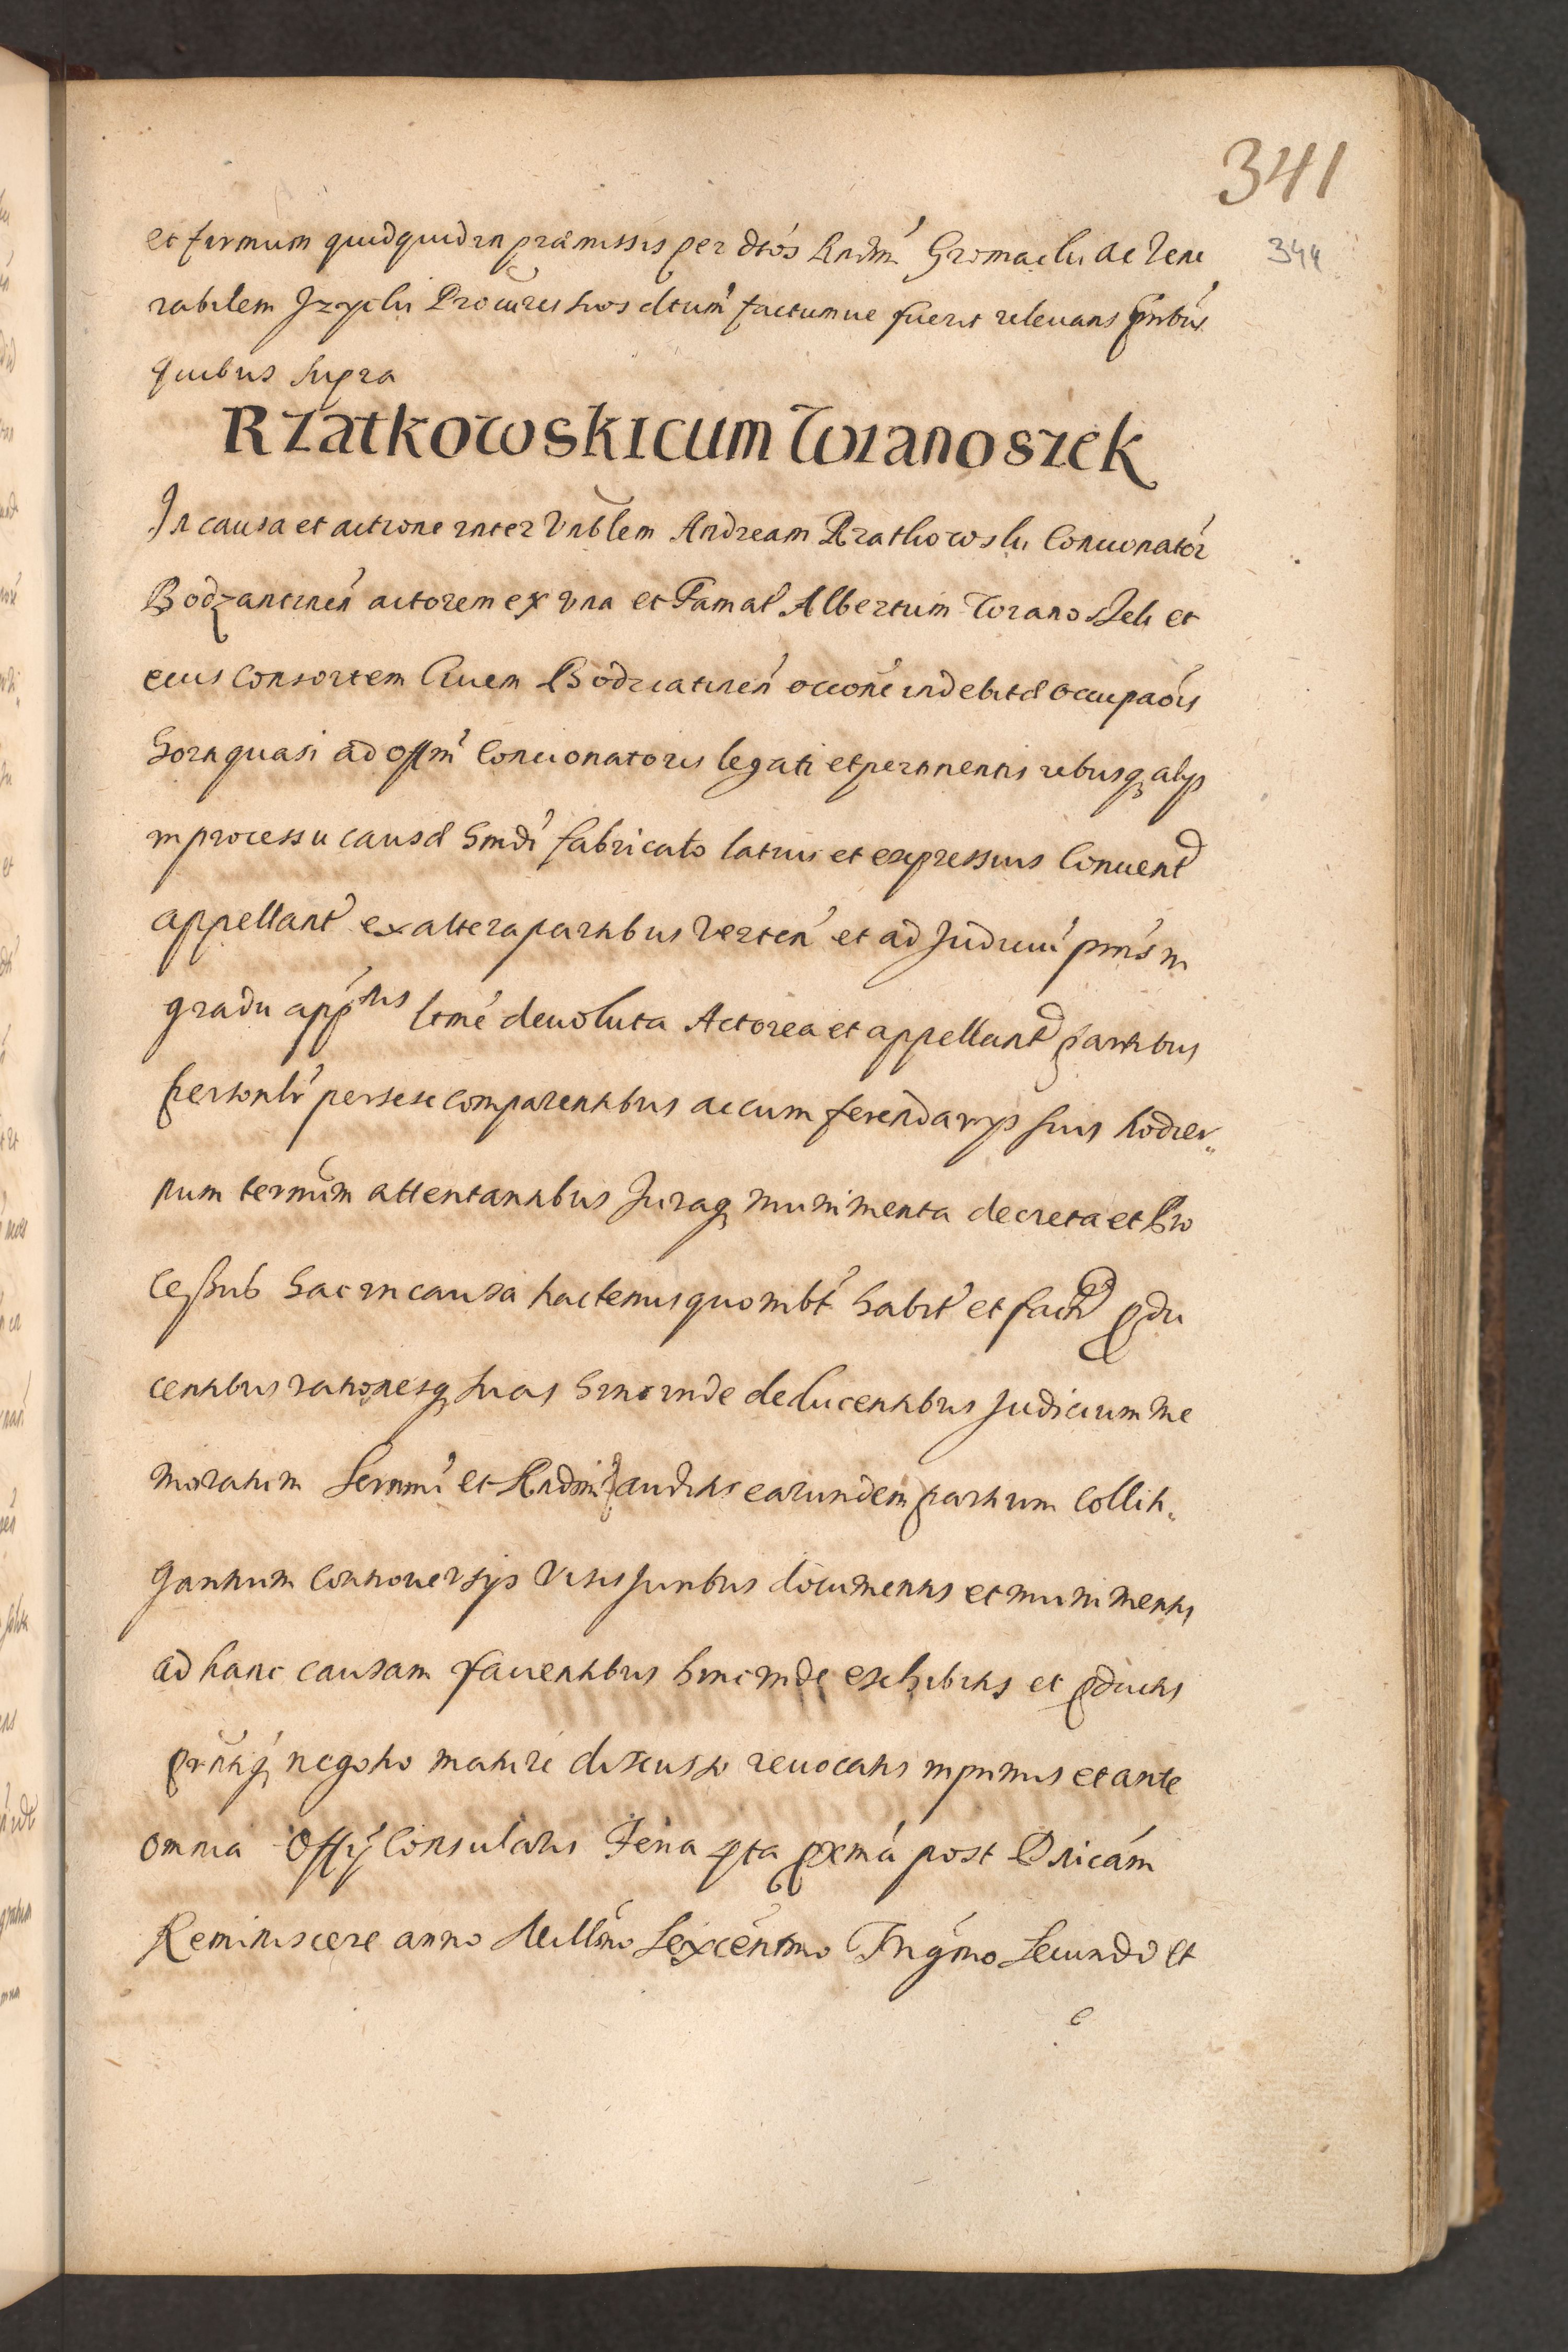 341
344
et firmum quidquid in præmissis per dtós Rndm̃ Gromacki ac Vene
rabilem Jzycki Procũres suos dtum̃ factumue fuerit releuans pñtbús
quibus supra
Rzatkowski cum Woranoszek
In causa et actione inter Vnblem Andream Rzatkowski Concionatór
Bodzantineñ actorem ex vna et Famat̃ Albertum Woranoszek et
eius Consortem Ciuem Bodziatineñ occõne indebitæ occupaõis
horti quasi ad offm̃ Concionatoris legati et pertinentis rebusq₃ alijs
in processu causæ hmdi̕ fabricato latius et expressius Conuent
appellant̕ ex altera partibus verteñ et ad Judicium̕ pñs in
gradu app̃nis ltmé deuoluta Actorea et appellant partibus
personlr̕ per se se comparentibus ac cum ferendarijs suis hodier„
num termĩm attentantibus Juraq₃ munimenta decreta et Pro
cessũs hac in causa hactenus quomõt habit̕ et fact pdu
centibus rationesq₃ suas hinc inde deducentibus Judicium me
moratum Sernmi̕ et Rndmi̕ auditis earundem partium Colliti„
gantium Controuersijs Visis Juribus documentis et munimentis
ad hanc causam fauentibus hinc inde exhibitis et pductis
pñtiq₃ negotio maturé discusso reuocatis inprimis et ante
omnia Offij Consularis Feria 4ta pxmá post Dnicám
Reminiscere anno Millm̃o Sexcéntmo Trigm̃o Secundo et